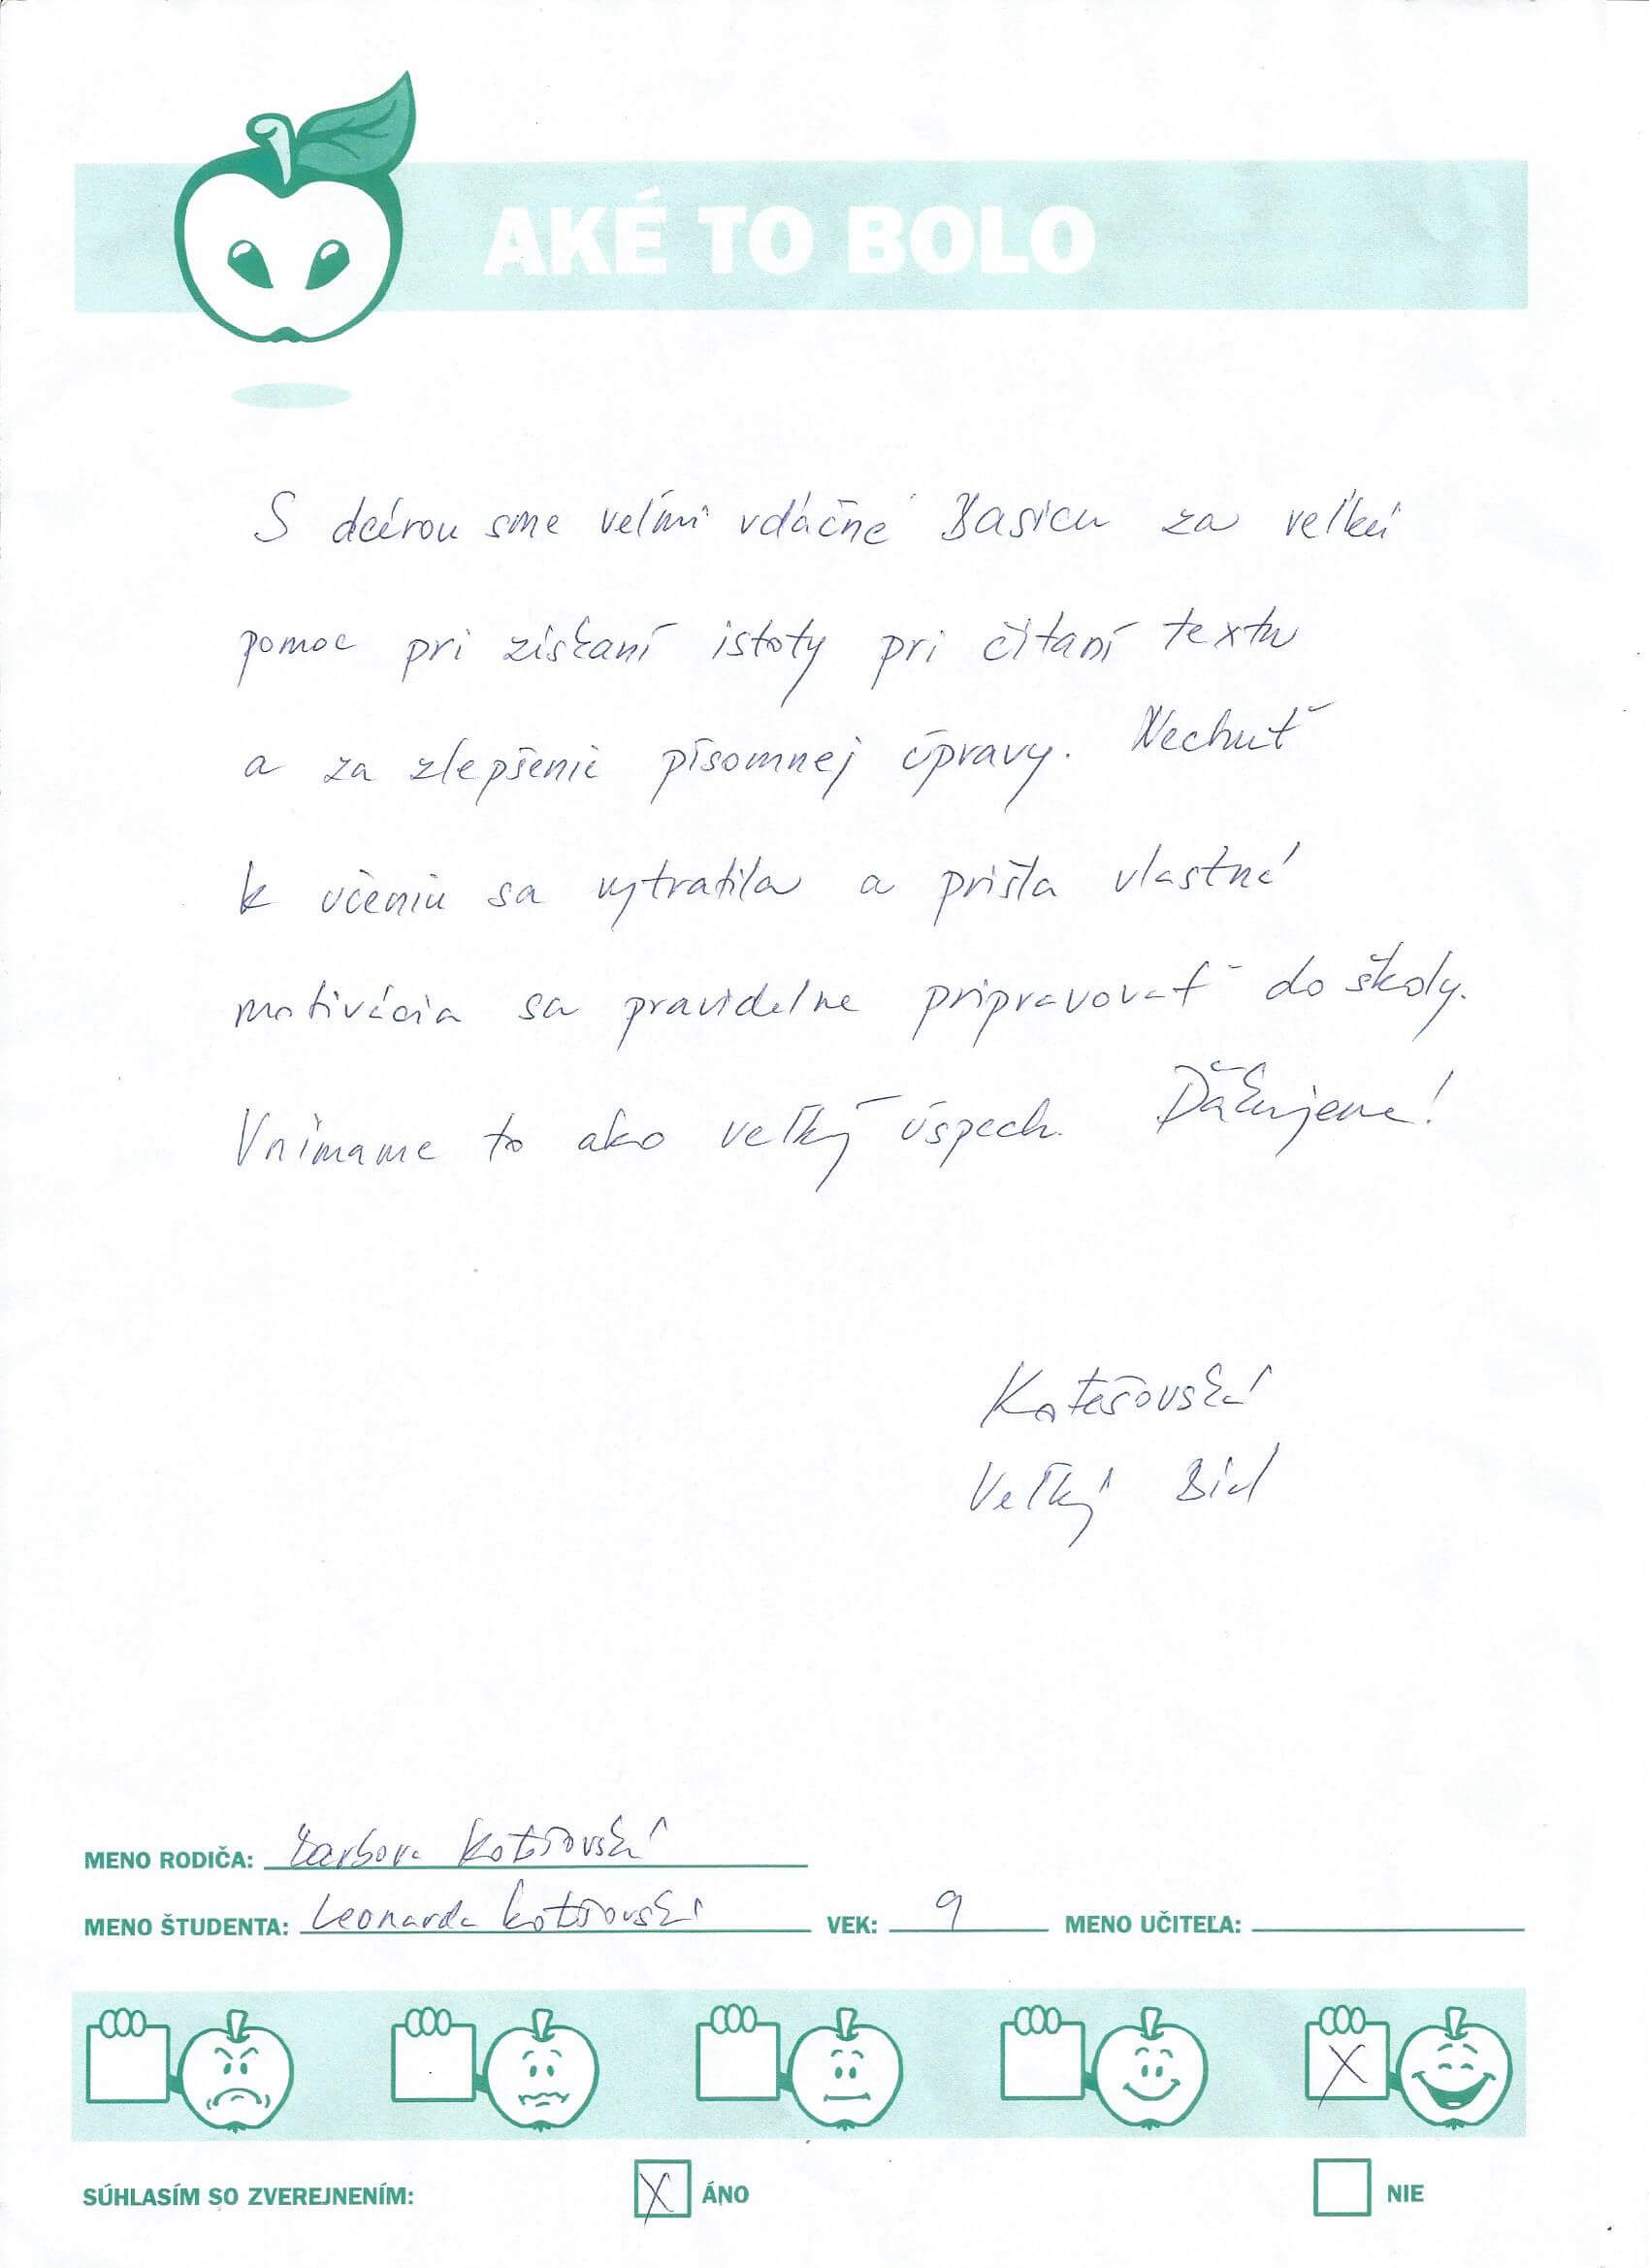 AKÉ TO BOLO
S dcérou sme veľmi vďačné Basicu za veľkú
pomoc pri získaní istoty pri čítaní textu
a za zlepšenie písomnej úpravy. Nechuť
k učeniu sa vytratila a prišla vlastná
motivácia sa pravidelne pripravovať do školy.
Vnímame to ako veľký úspech. Ďakujeme!
Kotešovská
Veľký Biel
MENO RODIČA: Barbora Kotešovská
MENO ŠTUDENTA: Leonarda Kotešovská VEK: 9 MENO UČITEĽA:
X
SÚHLASÍM SO ZVEREJNENÍM: X ÁNO NIE